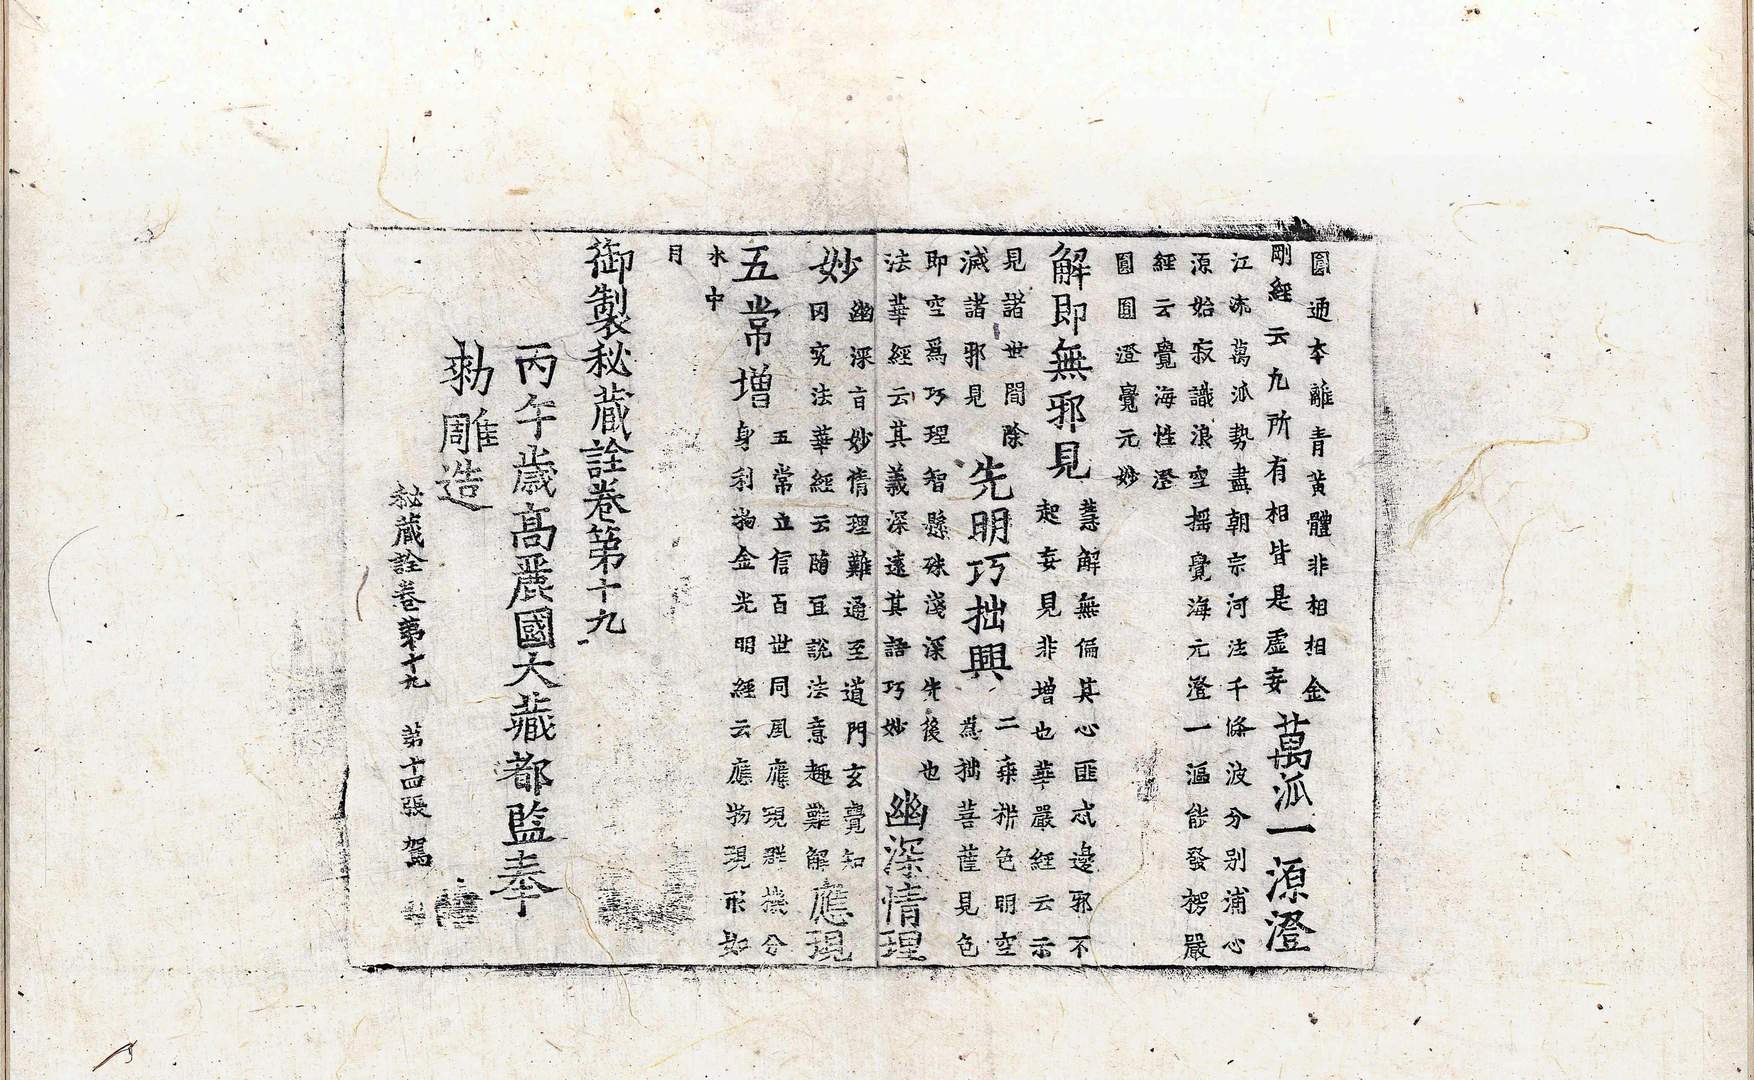 圓通本離青黃體非相相金
剛經云九所有相皆是虛妄萬泒一源澄
江流萬泒勢盡朝宗河注千條波分別浦心
源始寂識浪空搖覺海元澄一漚能發楞嚴
經云覺海性澄
圓圓澄覺元妙
解即無邪見
慧解無偏其心匪忒邊邪不
起妄見非增也華嚴經云示
見諸世間除
滅諸邪見
先明巧拙興
二乘析色明空
為拙菩薩見色
即空為巧理智懸殊淺深先後也
法華經云其義深遠其語巧妙
幽深情理
妙
幽深言妙情理難通至道門玄覺知
罔究法華經云隨宜說法意趣難解
應現
五常增
五常立信百世同風應現群機分
身利物金光明經云應物現形如
水中
月
御製秘蔵詮卷第十九
丙午歲高麗國大藏都監奉
勑雕造
秘蔵詮卷第十九 第十四張 駕